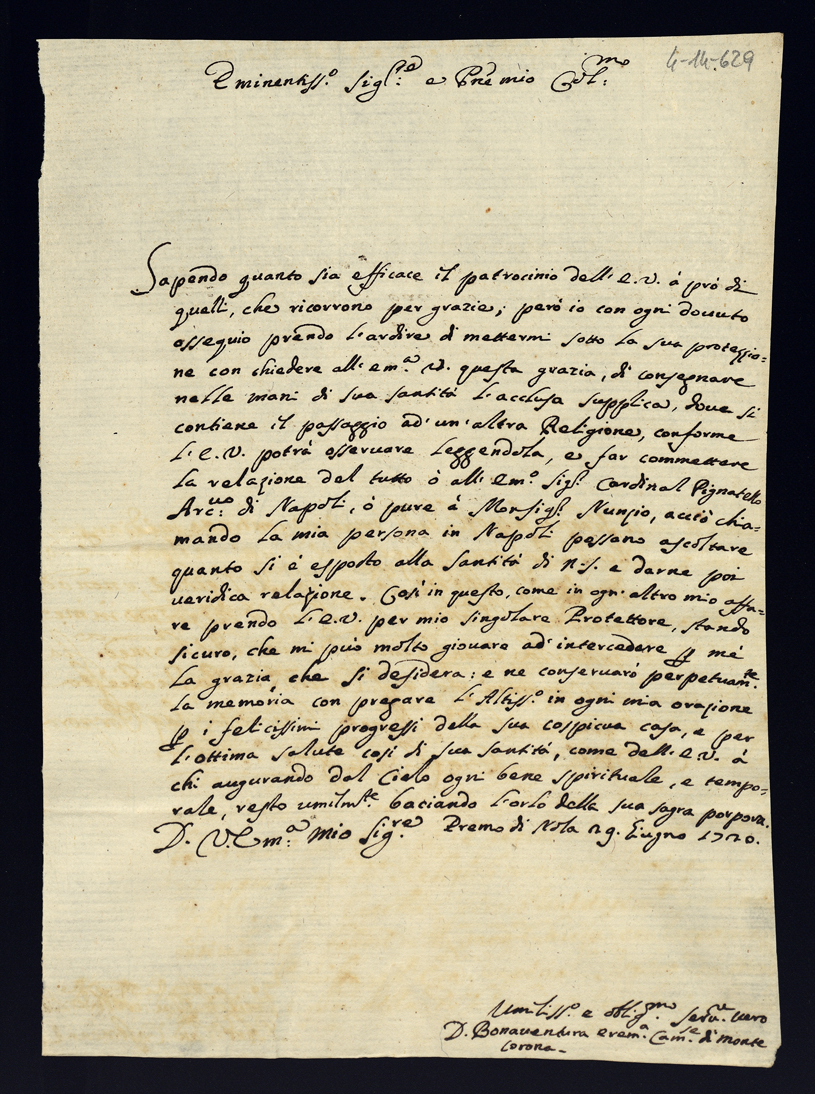 4-14-629
Eminentiss.º Sig.re e Pne mio Col.mo
Sapendo quanto sia efficace il patrocinio dell' E.V. à prò di
quelli, che ricorrono per grazie; però io con ogni douuto
ossequio prendo l'ardire di mettermi sotto la sua protezzio=
ne con chiedere all' Em.ª V. questa grazia, di consegnare
nelle mani di sua santità l'acclusa supplica, doue si
contiene il passaggio ad' un' altra Religione, conforme
l' E.V. potrà osseruare leggendola, e far commettere
la relazione del tutto ò all' Em.º Sig.r Cardinal Pignatello
Arc.uo di Napoli, ò pure à Monsig.r Nunzio, acciò chia=
mando la mia persona in Napoli possano ascoltare
quanto si è esposto alla Santità di N.S. e darne poi
ueridica relazione. Così in questo, come in ogn' altro mio affa=
re prendo l' E.V. per mio singolare Protettore, stando
sicuro, che mi può molto giouare ad' intercedere p mé
la grazia che si desidera: e ne conseruarò perpetuam.te
la memória con pregare l' Altiss.º in ogni mia orazione
p i felicissimi progressi della sua cospicua casa, e per
l'ottima salute così di sua santità, come dell' E.V. à
chi augurando dal Cielo ogni bene spirituale, e tempo=
rale, resto umilm.te baciando l'orlo della sua sagra porpora.
D. V. Em.ª mio Sig.re Premo di Nola 29. Giugno 1720.
Umiliss.º e obblig.mo seru.e uero
D. Bonauentura erem.ª Cam.se di Monte
Corona.